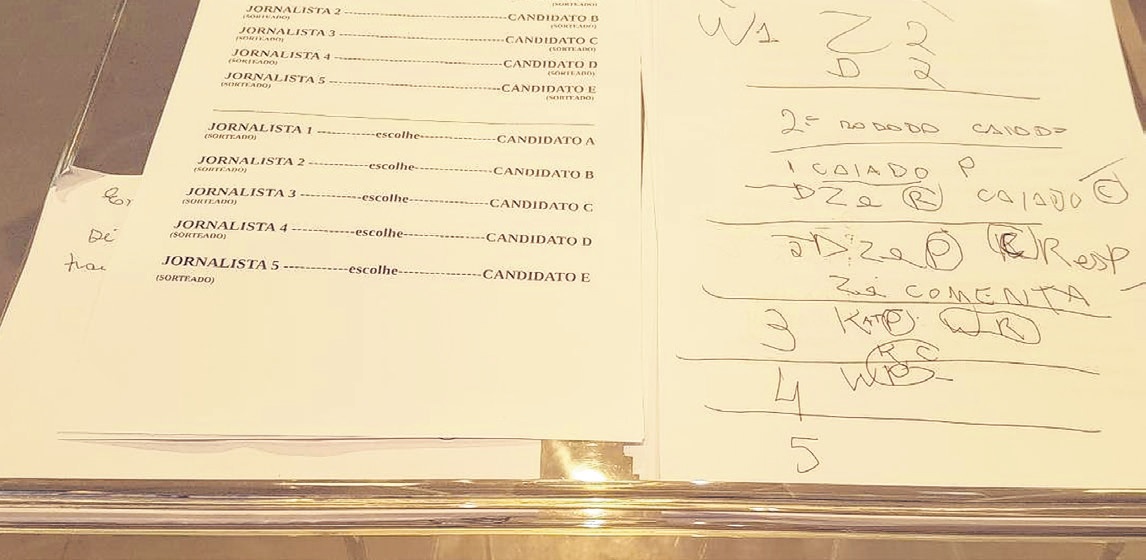 (SORTEADO)
JORNALISTA 2 ------------------------------CANDIDATO B
(SORTEADO) (SORTEADO)
JORNALISTA 3 ------------------------------CANDIDATO C
(SORTEADO) (SORTEADO)
JORNALISTA 4 ------------------------------CANDIDATO D
(SORTEADO) (SORTEADO)
JORNALISTA 5 ------------------------------CANDIDATO E
(SORTEADO) (SORTEADO)
JORNALISTA 1 ------------escolhe-----------------CANDIDATO A
(SORTEADO)
JORNALISTA 2 ------------escolhe----------------CANDIDATO B
(SORTEADO)
JORNALISTA 3 ------------escolhe----------------CANDIDATO C
(SORTEADO)
JORNALISTA 4 ------------escolhe----------------CANDIDATO D
(SORTEADO)
JORNALISTA 5 -------------escolhe----------------CANDIDATO E
(SORTEADO)
W1 Z 2
D 2
2ª CAIADO
1 CAIADO P
D Zé R CAIADO C
2 D Zé P R Resp
Zé COMENTA
3 W R
R C
4 W P
5